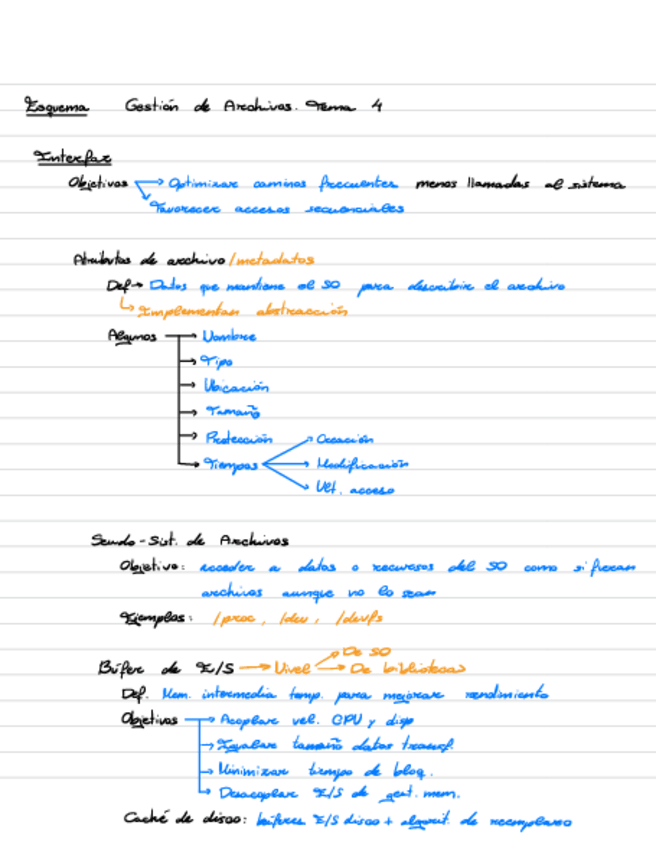 Esquema Gestión de Archivos. Tema 4
Interfaz
Objetivos → Optimizar caminos frecuentes menos llamadas al sistema
Favorecer accesos secuenciales
Atributos de archivo / metadatos
Def → Datos que mantiene el SO para describir el archivo
Implementan abstracción
Algunos → Nombre
→ Tipo
→ Ubicación
→ Tamaño
→ Protección → Creación
→ Tiempos → Modificación
→ Ult. acceso
Seudo-Sist. de Archivos
Objetivo: acceder a datos o recursos del SO como si fueran
archivos aunque no lo sean
Ejemplos: /proc, /dev, /devfs
→ De SO
Búfer de E/S → Nivel → De bibliotecas
Def. Mem. intermedia temp. para mejorar rendimiento
Objetivos → Acoplar vel. CPU y disp
→ Igualar tamaño datos transf.
→ Minimizar tiempo de bloq.
→ Desacoplar E/S de gest. mem.
Caché de disco: búferes E/S disco + algorit. de reemplazo